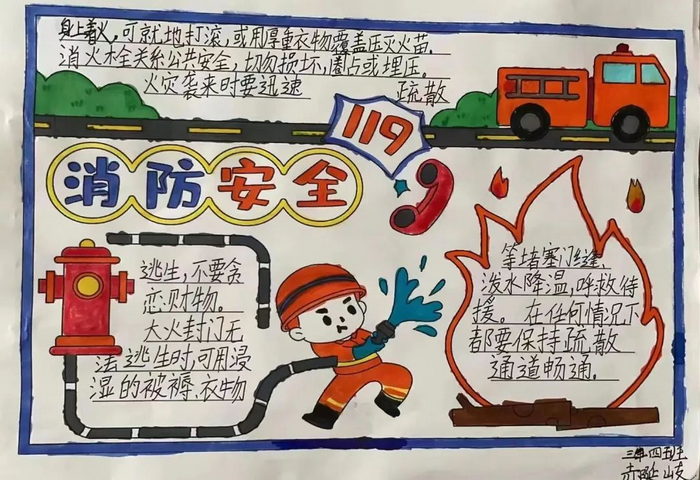 身上着火,可就地打滚,或用厚重衣物覆盖压灭火苗.
消火栓关系公共安全,切勿损坏,圈占或埋压.
火灾袭来时要迅速 疏散
119
消防安全
逃生,不要贪
恋财物。
大火封门无
法逃生时,可用浸
湿的被褥、衣物
等堵塞门缝,
泼水降温,呼救待
援。在任何情况下
都要保持疏散
通道畅通.
三年四班